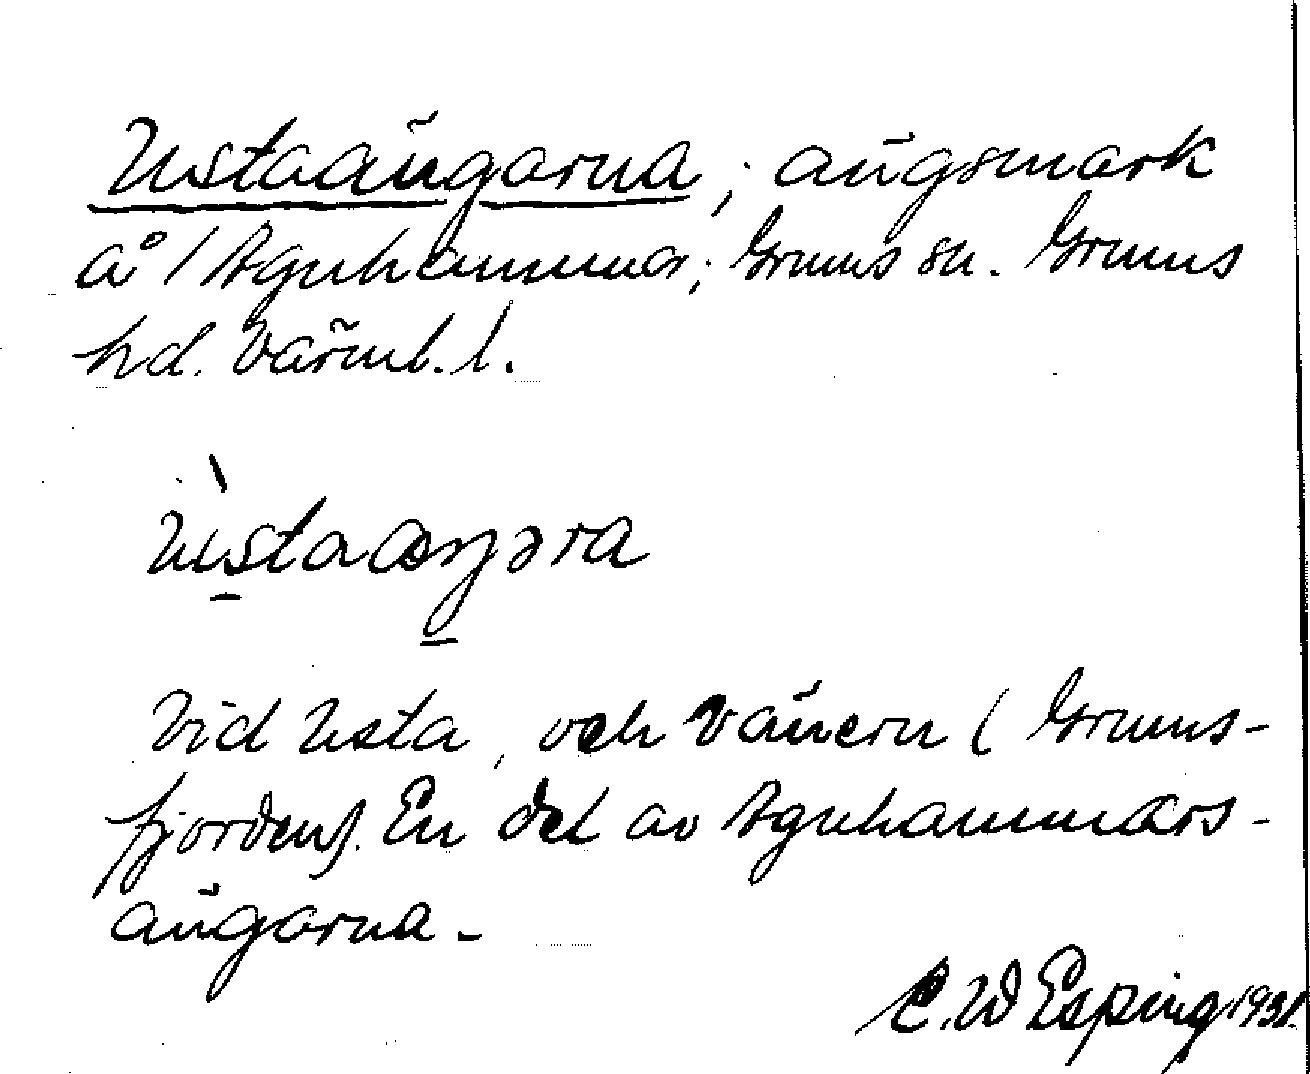 Ustaängarna, ängsmark
å / Agnhammar; Grums sn. Grums
hd. Värml. l.
ùstaæŋəra
Vid Usta, och Vänern ( Grums-
fjorden). En del av Agnhammars-
ängarna -
C. W Esping 1931.